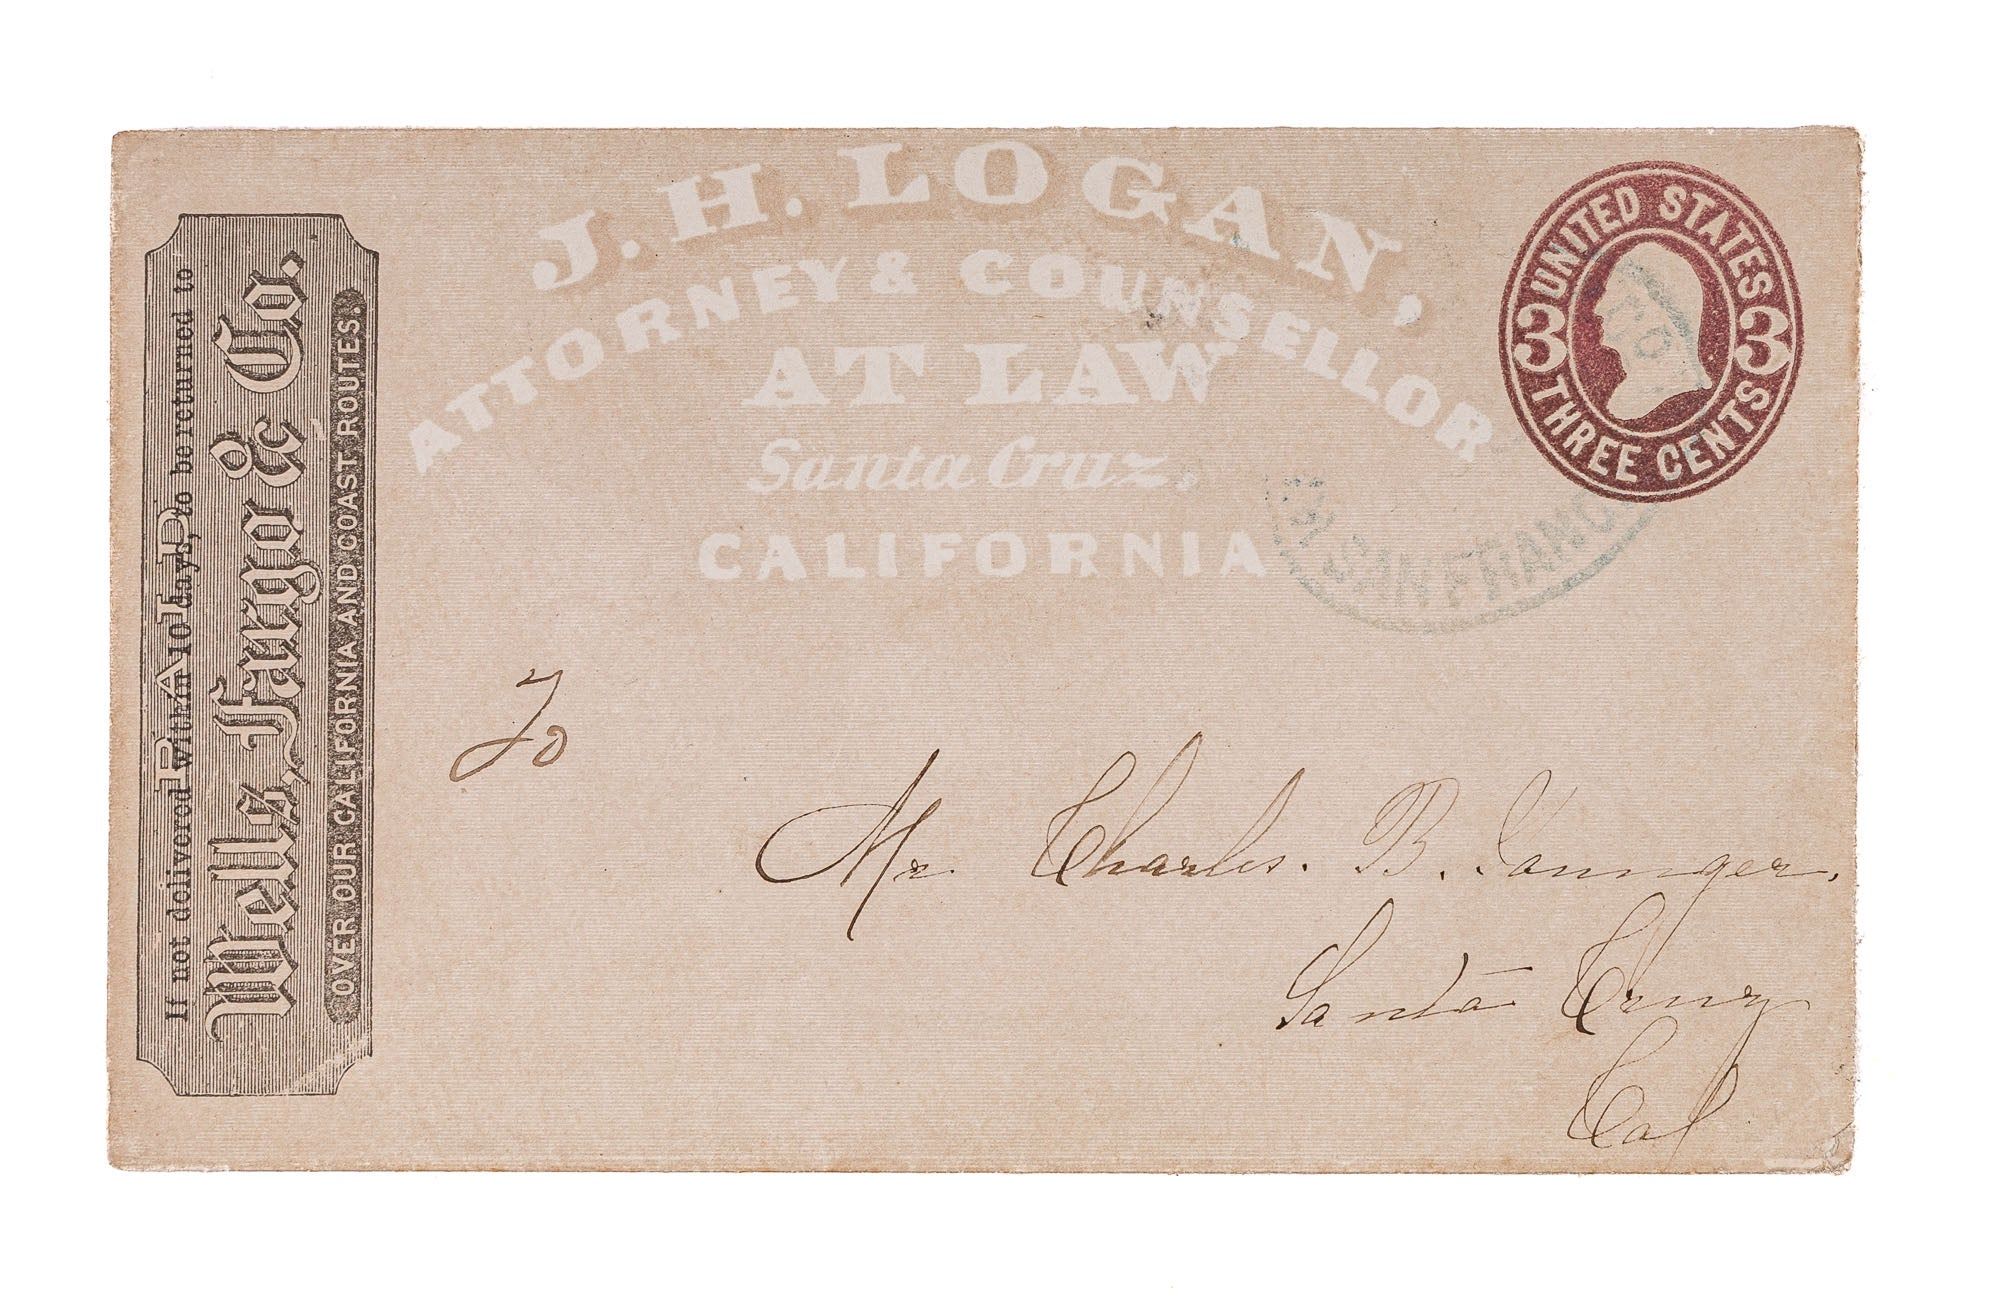 J. H. LOGAN,
ATTORNEY & COUNSELLOR
AT LAW
Santa Cruz.
CALIFORNIA
UNITED STATES
3 3
THREE CENTS
PAID
If not delivered within 10 days, to be returned to
Wells, Fargo & Co.
OVER OUR CALIFORNIA AND COAST ROUTES.
SAN FRANCISCO
To
Mr. Charles. B. Younger.
Santa Cruz
Cal